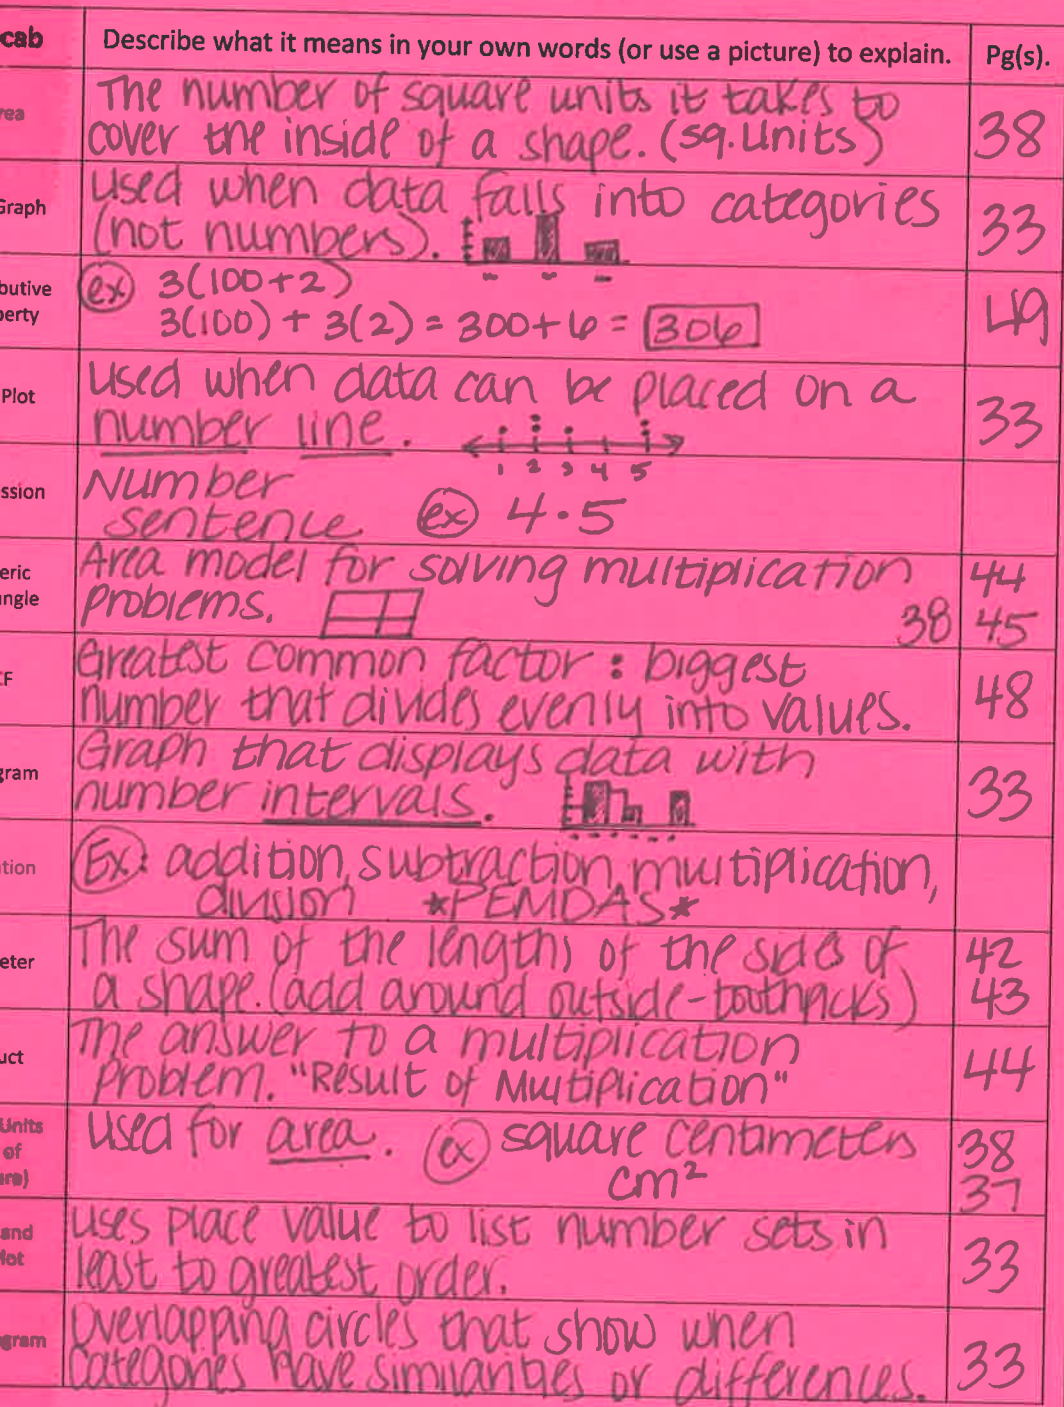 cab Describe what it means in your own words (or use a picture) to explain. Pg(s).
rea The number of square units it takes to
cover the inside of a shape. (sq. units) 38
Graph used when data falls into categories
(not numbers). 33
butive ex 3(100+2)
perty 3(100) + 3(2) = 300+6 = 306 49
Plot Used when data can be placed on a
number line. 33
1 2 3 4 5
ssion Number
sentence ex 4·5
eric Area model for solving multiplication 44
angle problems. 38 45
CF Greatest common factor: biggest
number that divides evenly into values. 48
gram Graph that displays data with
number intervals. 33
ation Ex: addition, subtraction, multiplication,
division *PEMDAS*
eter The sum of the lengths of the sides of 42
a shape. (add around outside-toothpicks) 43
uct The answer to a multiplication
problem. "Result of Multiplication" 44
Units used for area. ex square centimeters 38
of cm² 37
ure)
and uses place value to list number sets in
lot least to greatest order. 33
gram Overlapping circles that show when
categories have similarities or differences. 33